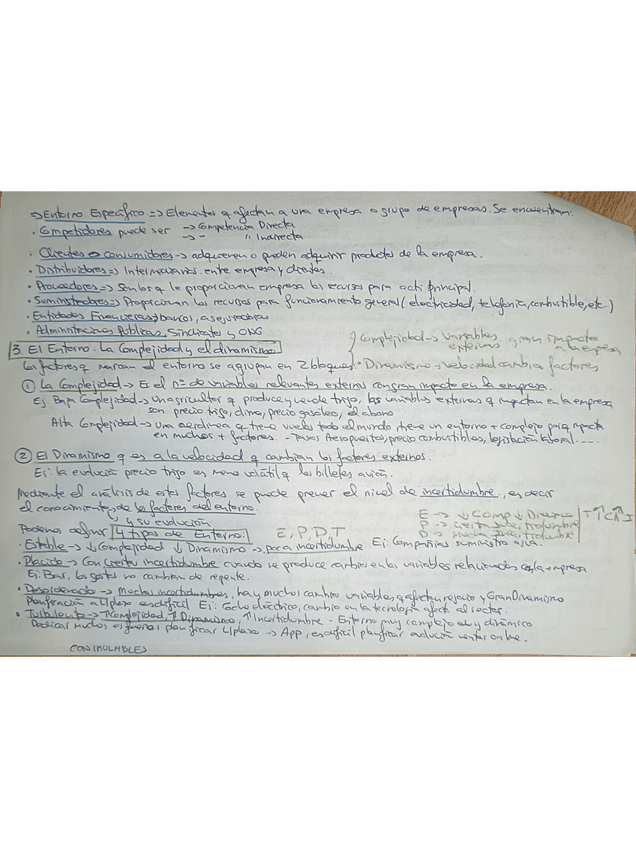 ⇒ Entorno Específico ⇒ Elementos q afectan a una empresa o grupo de empresas. Se encuentran:
· Competidores puede ser → Competencia Directa
→ - " Indirecta
· Clientes o consumidores → adquieren o pueden adquirir productos de la empresa.
· Distribuidores ⇒ Intermediarios entre empresa y clientes
· Proveedores ⇒ Son los q le proporcionan empresa los recursos para acti principal.
· Suministradores ⇒ Proporcionan los recursos para funcionamiento general (electricidad, telefonía, combustible, etc..)
· Entidades Financieras ⇒ bancos, aseguradoras
· Administraciones Públicas, Sindicatos y ONG
3. El Entorno: La Complejidad y el dinamismo
Complejidad → variables externas gran impacto a la empresa
Los factores q marcan el entorno se agrupan en 2 bloques · Dinamismo → velocidad cambia factores
① La Complejidad → Es el nº de variables relevantes externas con gran impacto en la empresa.
Ej Baja Complejidad → un agricultor q produce y vende trigo, las variables externas q impactan en la empresa
son precio trigo, clima, precio gasoleo, el abono
Alta Complejidad → una aerolinea q tiene vuelos todo el mundo, tiene un entorno + complejo pq impacta
en muchos + factores. - Tasas Aeropuertos, precio combustibles, legislación laboral.....
② El Dinamismo q es a la velocidad q cambian los factores externos.
Ej: la evolución precio trigo es menos volátil q los billetes avión.
Mediante el análisis de estos factores se puede prever el nivel de incertidumbre, es decir
el conocimiento de los factores del entorno
y su evolución
E → ↓ Comp ↓ Dinam
P → cierta incertidumbre
D → mucha incertidumbre
T ↑C ↑ I
Podemos definir 4 tipos de Entorno: E, P, D, T
· Estable → ↓ Complejidad ↓ Dinamismo → poca incertidumbre Ej: Compañias suministro agua.
· Placido → Con cierta incertidumbre cuando se produce cambio en las variables relacionadas con la empresa
Ej: Bar, los gastos no cambian de repente.
· Desordenado → Mucha incertidumbre, hay muchos cambios variables q afectan negocio y Gran Dinamismo
Planificación a L/plazo es dificil Ej: Coche eléctrico, cambio en la tecnología afecta al sector.
· Turbulento → ↑ Complejidad, ↑ Dinamismo, ↑ Incertidumbre - Entorno muy complejo y dinámico
Dedicar muchos esfuerzos planificar L/plazo → App, es dificil planificar evolución ventas online.
CONTROLABLES